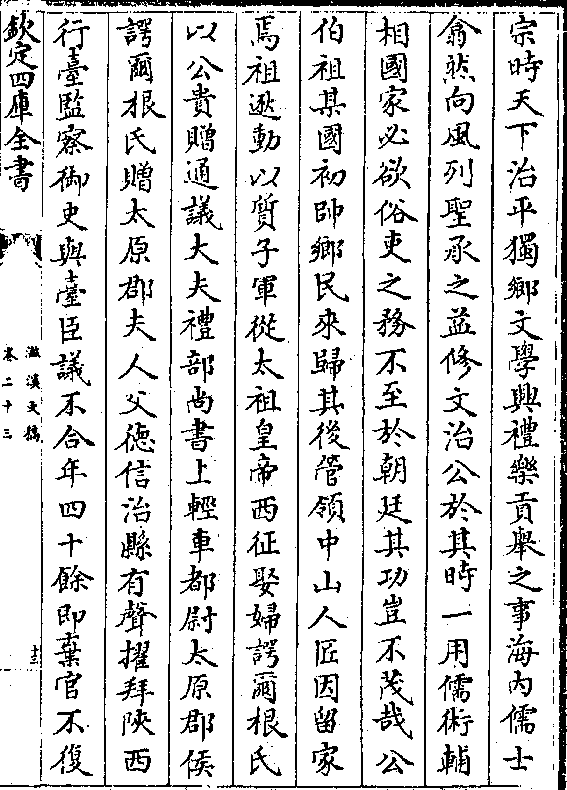 宗時天下治平獨鄉文學興禮樂貢舉之事海内儒士
翕然向風列聖承之益修文治公於其時一用儒術輔
相國家必欲俗吏之務不至於朝廷其功豈不茂哉公
伯祖某國初帥鄉民來歸其後管領中山人匠因留家
焉祖遜動以質子軍從太祖皇帝西征娶婦諤爾根氏
以公貴贈通議大夫禮部尚書上輕車都尉太原郡侯
諤爾根氏贈太原郡夫人父德信治縣有聲擢拜陝西
行臺監察御史與臺臣議不合年四十餘即棄官不復
欽定四庫全書
滋溪文稿
卷二十三